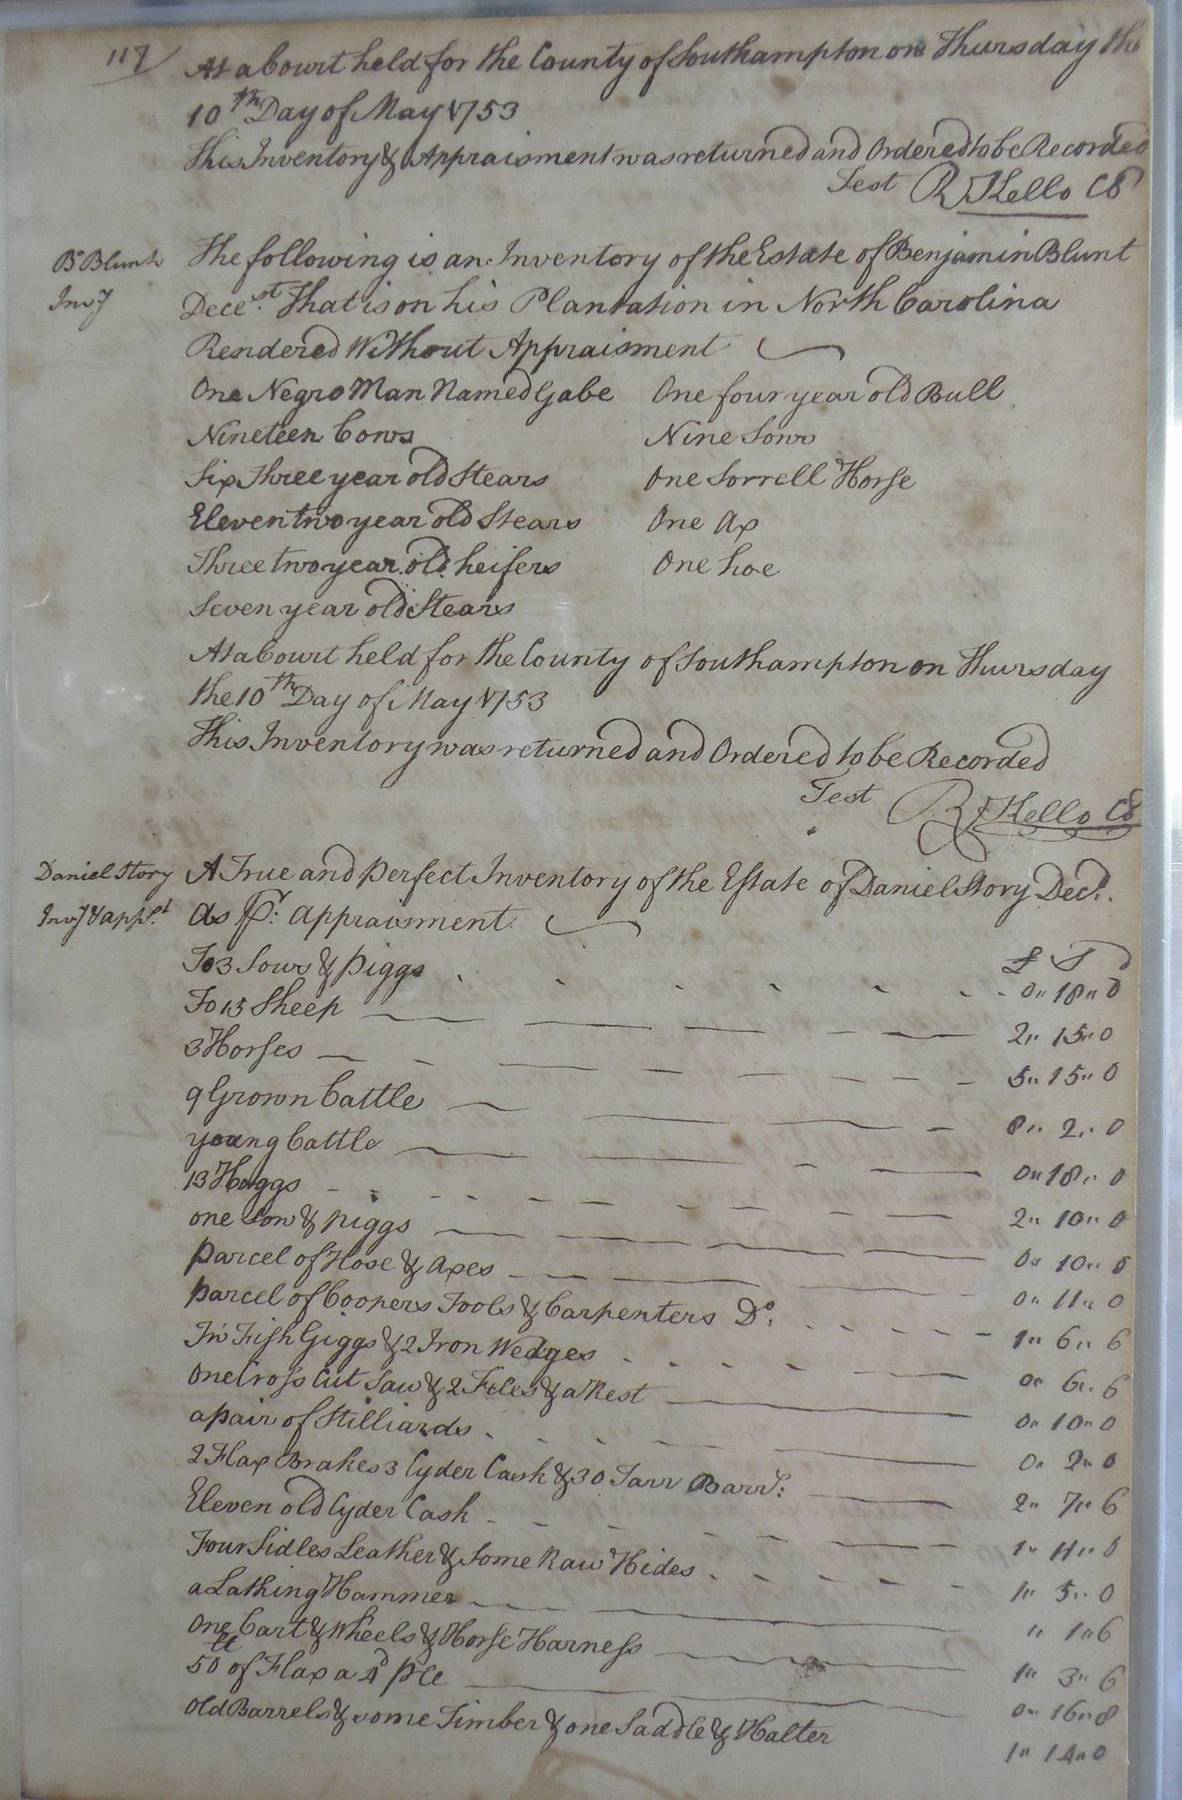 117
At a Court held for the County of Southampton on Thursday the
10th Day of May 1753
This Inventory & Appraisment was returned and Ordered to be Recorded
Test R Kello C
B Blunt The following is an Inventory of the Estate of Benjamin Blunt
Invy Decest. That is on his Plantation in North Carolina
Rendered Without Appraisment
One Negro Man Named Gabe One four year old Bull
Nineteen Cows Nine Sows
Six Three year old Stears One Sorrell Horse
Eleven two year old Stears One Ax
Three two year old heifers One hoe
Seven year old Stears
At a Court held for the County of Southampton on Thursday
the 10th Day of May 1753
This Inventory was returned and Ordered to be Recorded
Test R Kello C
Daniel Story A True and perfect Inventory of the Estate of Daniel Story Decd.
Invy & appst. As Pr. Appraisment
£ S d
To 3 Sows & piggs 0" 18" 0
To 15 Sheep 2" 15" 0
3 Horses 5" 15" 0
9 Grown Cattle 8" 2" 0
young Cattle 0" 18" 0
13 Hoggs 2" 10" 0
one Sow & piggs 0" 10" 0
parcel of Hose & axes 0" 11" 0
parcel of Coopers Tools & Carpenters Do. 1" 6" 6
Fish Giggs & 2 Iron Wedges 0" 6" 6
One Cross Cut Saw & 2 Files & a Rest 0" 10" 0
a pair of Stilliards 0" 2" 0
2 Flax Brakes 3 Cyder Cask & 30 Tarr Barrs: 2" 7" 6
Eleven old Cyder Cask 1" 11" 0
Four Sidles Leather & Some Raw Hides 1" 5" 0
a Lathing Hammer " 1" 6
One Cart & Wheels & Horse Harness 1" 3" 6
50 lt of Flax a 4d pce 0" 16" 8
old Barrels & some Timber & one Saddle & Halter 1" 14" 0